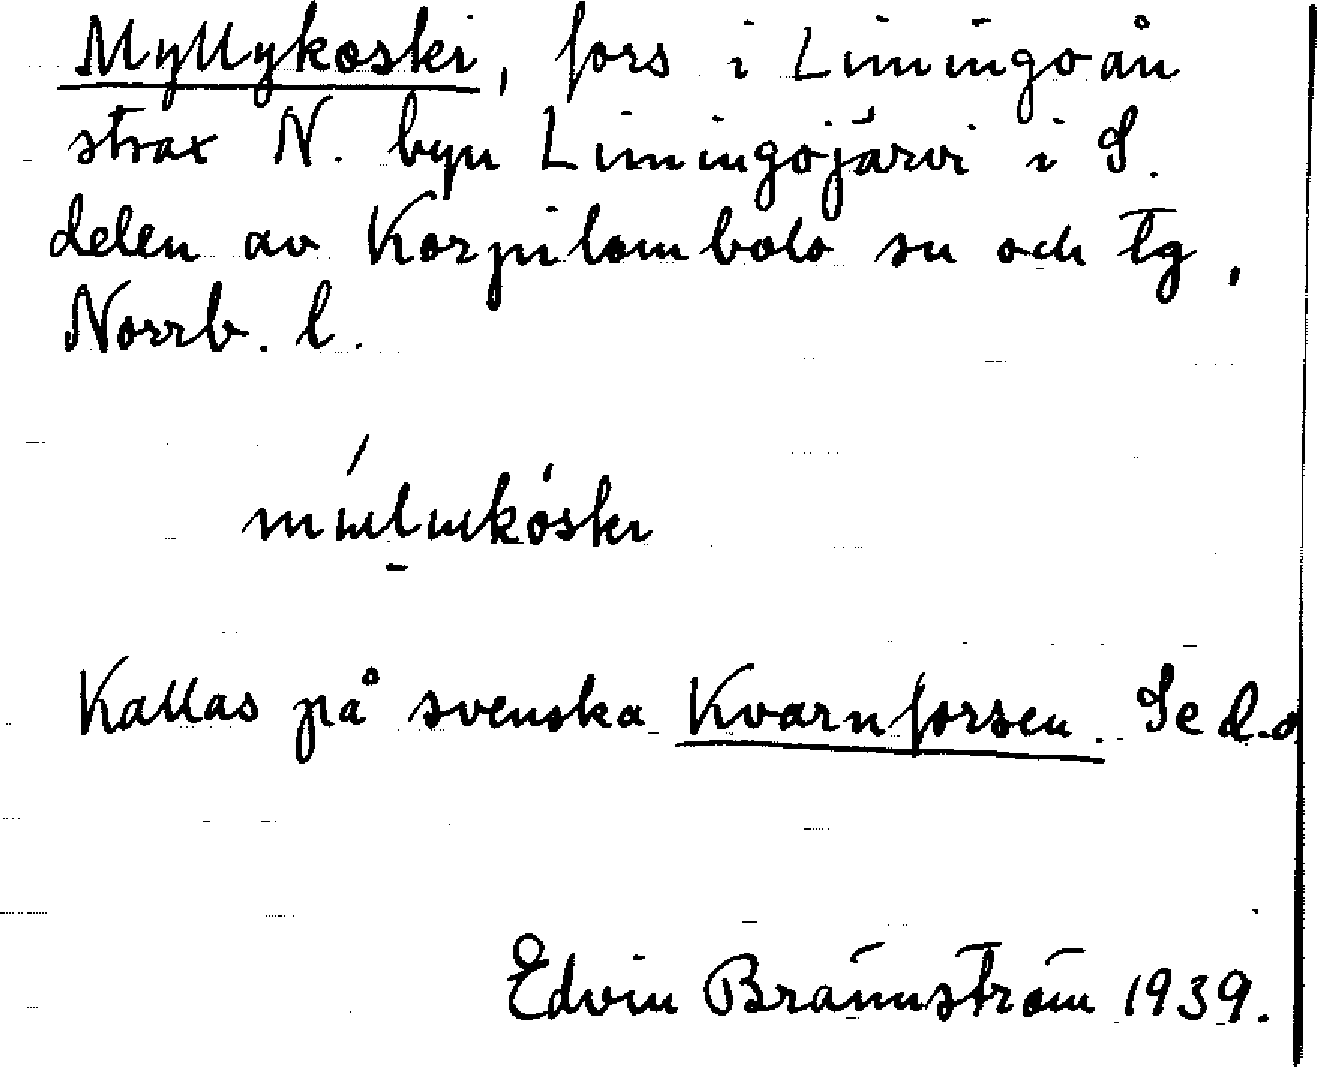 Myllykoski, fors i Liminguån
strax N. byn Limingojärvi i S.
delen av Korpilombolo sn och tg,
Norrb. l.
Kallas på svenska Kvarnforsen. Se d.o
Edvin Brännström 1939.